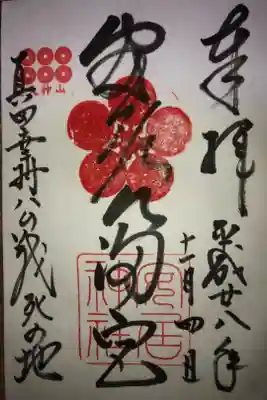 奉拝
平成廿八年
十一月四日
安居天満宮
安居
神社
真田幸村公戦死の地